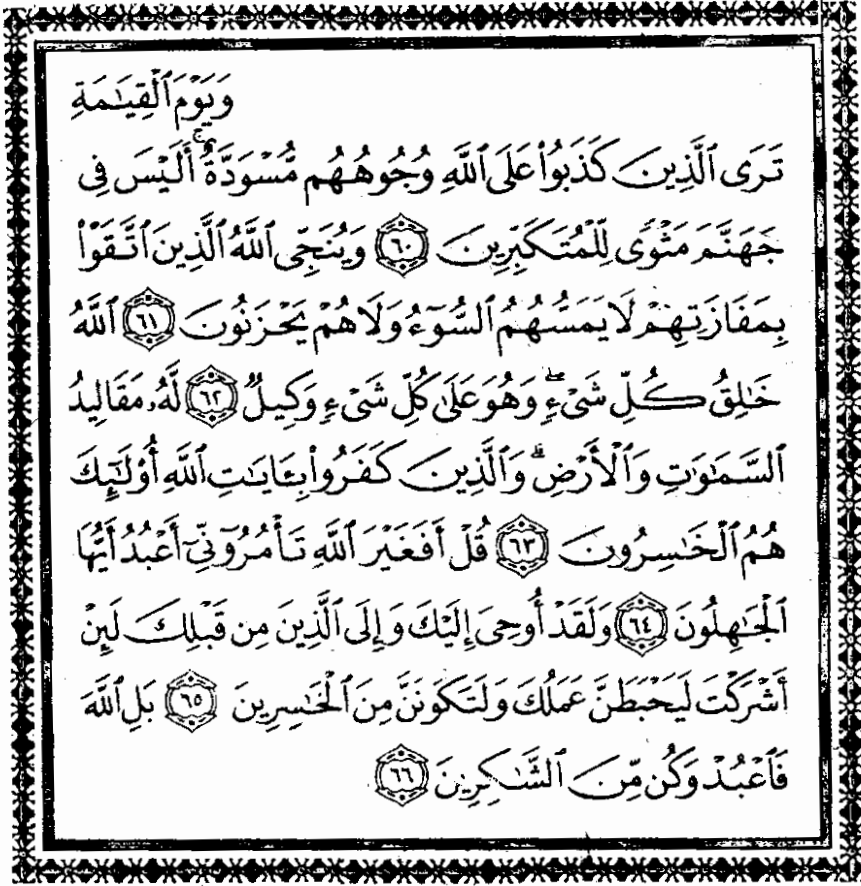 وَيَوْمَ ٱلْقِيَٰمَةِ
تَرَى ٱلَّذِينَ كَذَبُوا۟ عَلَى ٱللَّهِ وُجُوهُهُم مُّسْوَدَّةٌ ۚ أَلَيْسَ فِى
جَهَنَّمَ مَثْوًى لِّلْمُتَكَبِّرِينَ ٦٠ وَيُنَجِّى ٱللَّهُ ٱلَّذِينَ ٱتَّقَوْا۟
بِمَفَازَتِهِمْ لَا يَمَسُّهُمُ ٱلسُّوٓءُ وَلَا هُمْ يَحْزَنُونَ ٦١ ٱللَّهُ
خَٰلِقُ كُلِّ شَىْءٍ ۖ وَهُوَ عَلَىٰ كُلِّ شَىْءٍ وَكِيلٌ ٦٢ لَّهُۥ مَقَالِيدُ
ٱلسَّمَٰوَٰتِ وَٱلْأَرْضِ ۗ وَٱلَّذِينَ كَفَرُوا۟ بِـَٔايَٰتِ ٱللَّهِ أُو۟لَٰٓئِكَ
هُمُ ٱلْخَٰسِرُونَ ٦٣ قُلْ أَفَغَيْرَ ٱللَّهِ تَأْمُرُوٓنِّىٓ أَعْبُدُ أَيُّهَا
ٱلْجَٰهِلُونَ ٦٤ وَلَقَدْ أُوحِىَ إِلَيْكَ وَإِلَى ٱلَّذِينَ مِن قَبْلِكَ لَئِنْ
أَشْرَكْتَ لَيَحْبَطَنَّ عَمَلُكَ وَلَتَكُونَنَّ مِنَ ٱلْخَٰسِرِينَ ٦٥ بَلِ ٱللَّهَ
فَٱعْبُدْ وَكُن مِّنَ ٱلشَّٰكِرِينَ ٦٦